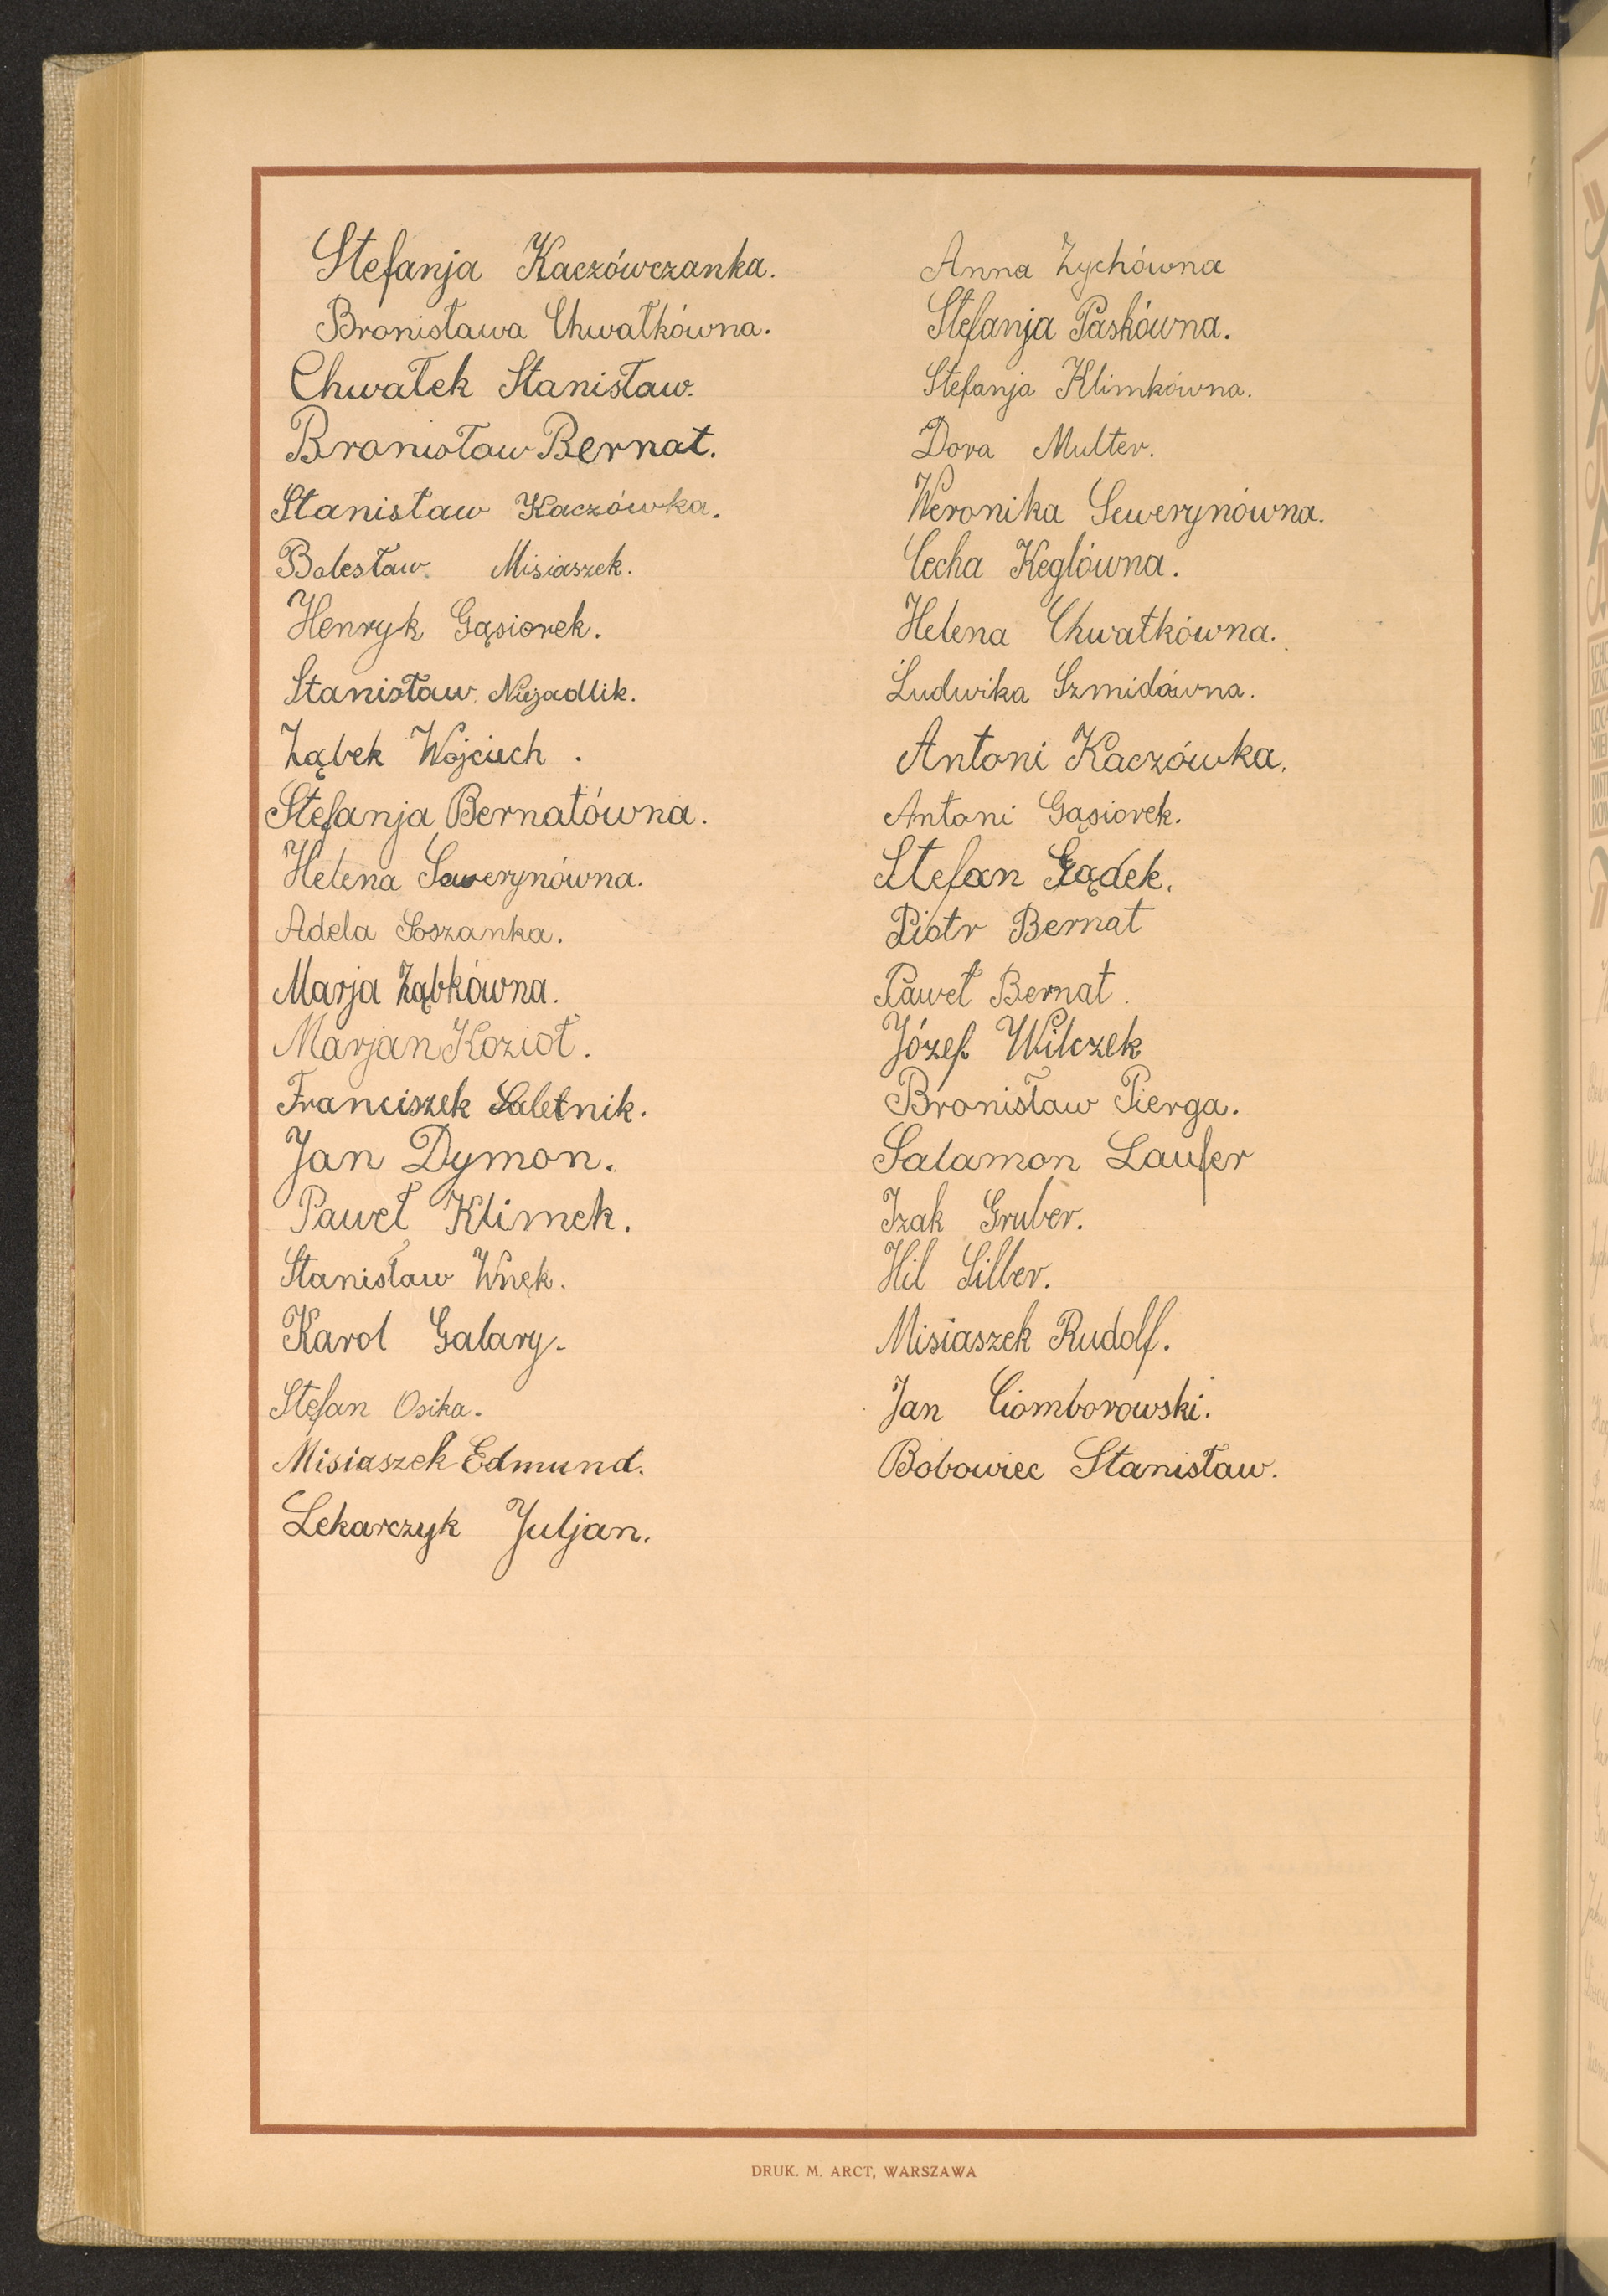 Stefanja Kaczówczanka.
Bronisława Chwałkówna.
Chwałek Stanisław.
Bronisław Bernat.
Stanisław Kaczówka.
Bolesław Misiaszek.
Henryk Gąsiorek.
Stanisław Niezadlik.
Ząbek Wojciech.
Stefanja Bernatówna.
Helena Sewerynówna.
Adela Soszanka.
Marja Ząbkówna.
Marjan Kozioł.
Franciszek Saletnik.
Jan Dymon.
Paweł Klimek.
Stanisław Wnęk.
Karol Galary.
Stefan Osika.
Misiaszek Edmund.
Lekarczyk Juljan.
Anna Zychówna
Stefanja Paskówna.
Stefanja Klimkówna.
Dora Multer.
Weronika Sewerynówna.
Cecha Keglówna.
Helena Chwałkówna.
Ludwika Szmidówna.
Antoni Kaczówka.
Antoni Gąsiorek.
Stefan Gądek.
Piotr Bernat
Paweł Bernat.
Józef Wilczek
Bronisław Pierga.
Salamon Laufer
Izak Gruber.
Hil Silber.
Misiaszek Rudolf.
Jan Ciomborowski.
Bobowiec Stanisław.
DRUK. M. ARCT, WARSZAWA